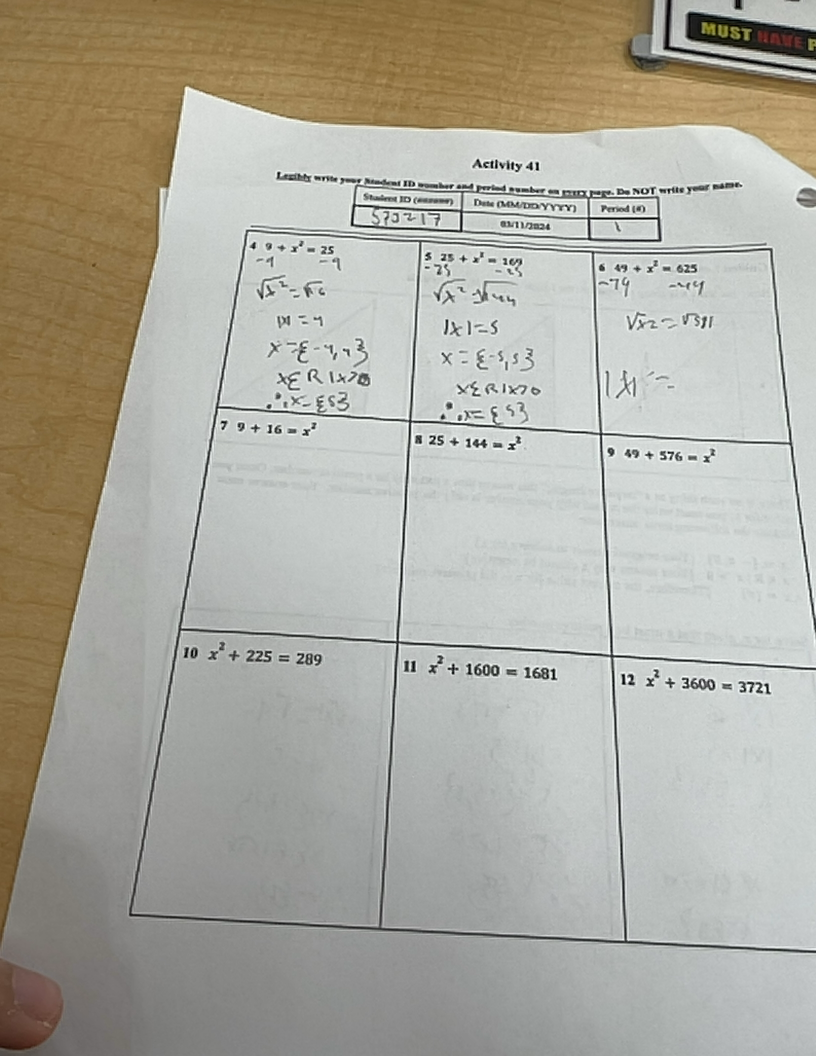 MUST HAVE P
Activity 41
Legibly write your Student ID number and period number on every page. Do NOT write your name.
Student ID (######) Date (MM/DD/YYYY) Period (#)
570217 03/11/2024 1
4 9 + x² = 25
-9 -9
√x² = √16
|x| = 4
x = {-4,4}
x∈R|x>0
∴x={5}
5 25 + x² = 169
-25 -25
√x² = √144
|x|=5
x = {-5,5}
x∈R|x>0
∴x={5}
6 49 + x² = 625
-79 -49
√x2 = √581
|x| =
7 9 + 16 = x²
8 25 + 144 = x²
9 49 + 576 = x²
10 x² + 225 = 289
11 x² + 1600 = 1681
12 x² + 3600 = 3721